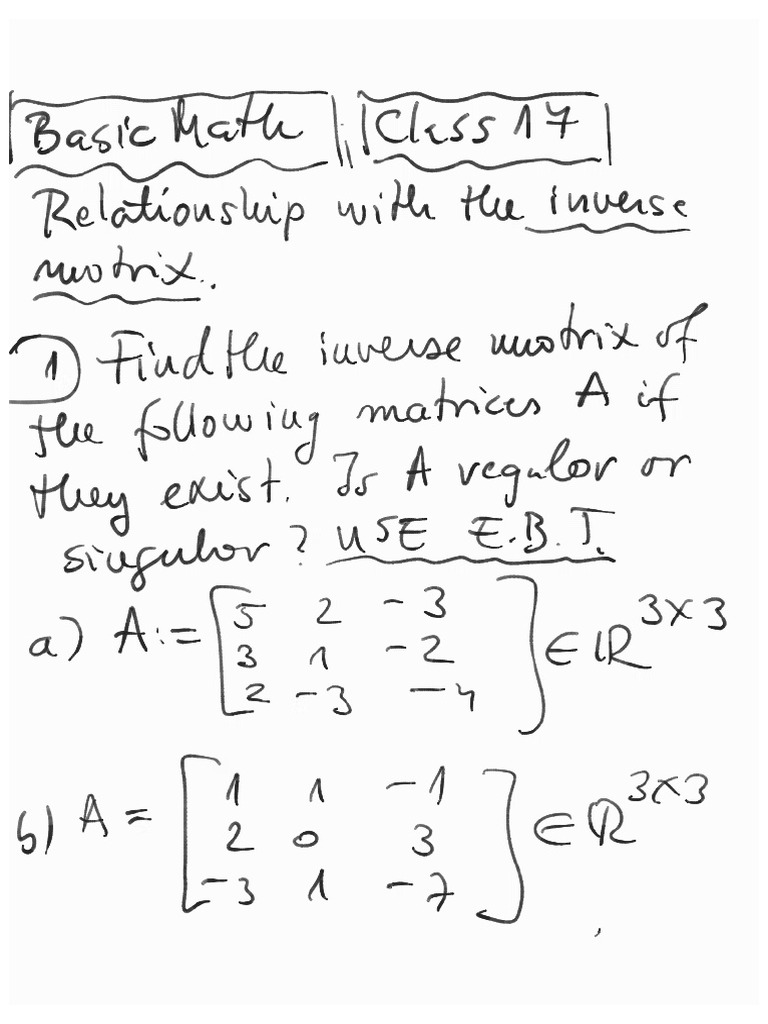 Basic Math Class 17
Relationship with the inverse
matrix.
1 Find the inverse matrix of
the following matrices A if
they exist. Is A regular or
singular? USE E.B.T.
a) A:= [5 2 -3
3 1 -2
2 -3 -4] ∈ ℝ^3×3
b) A = [1 1 -1
2 0 3
-3 1 -7] ∈ ℝ^3×3